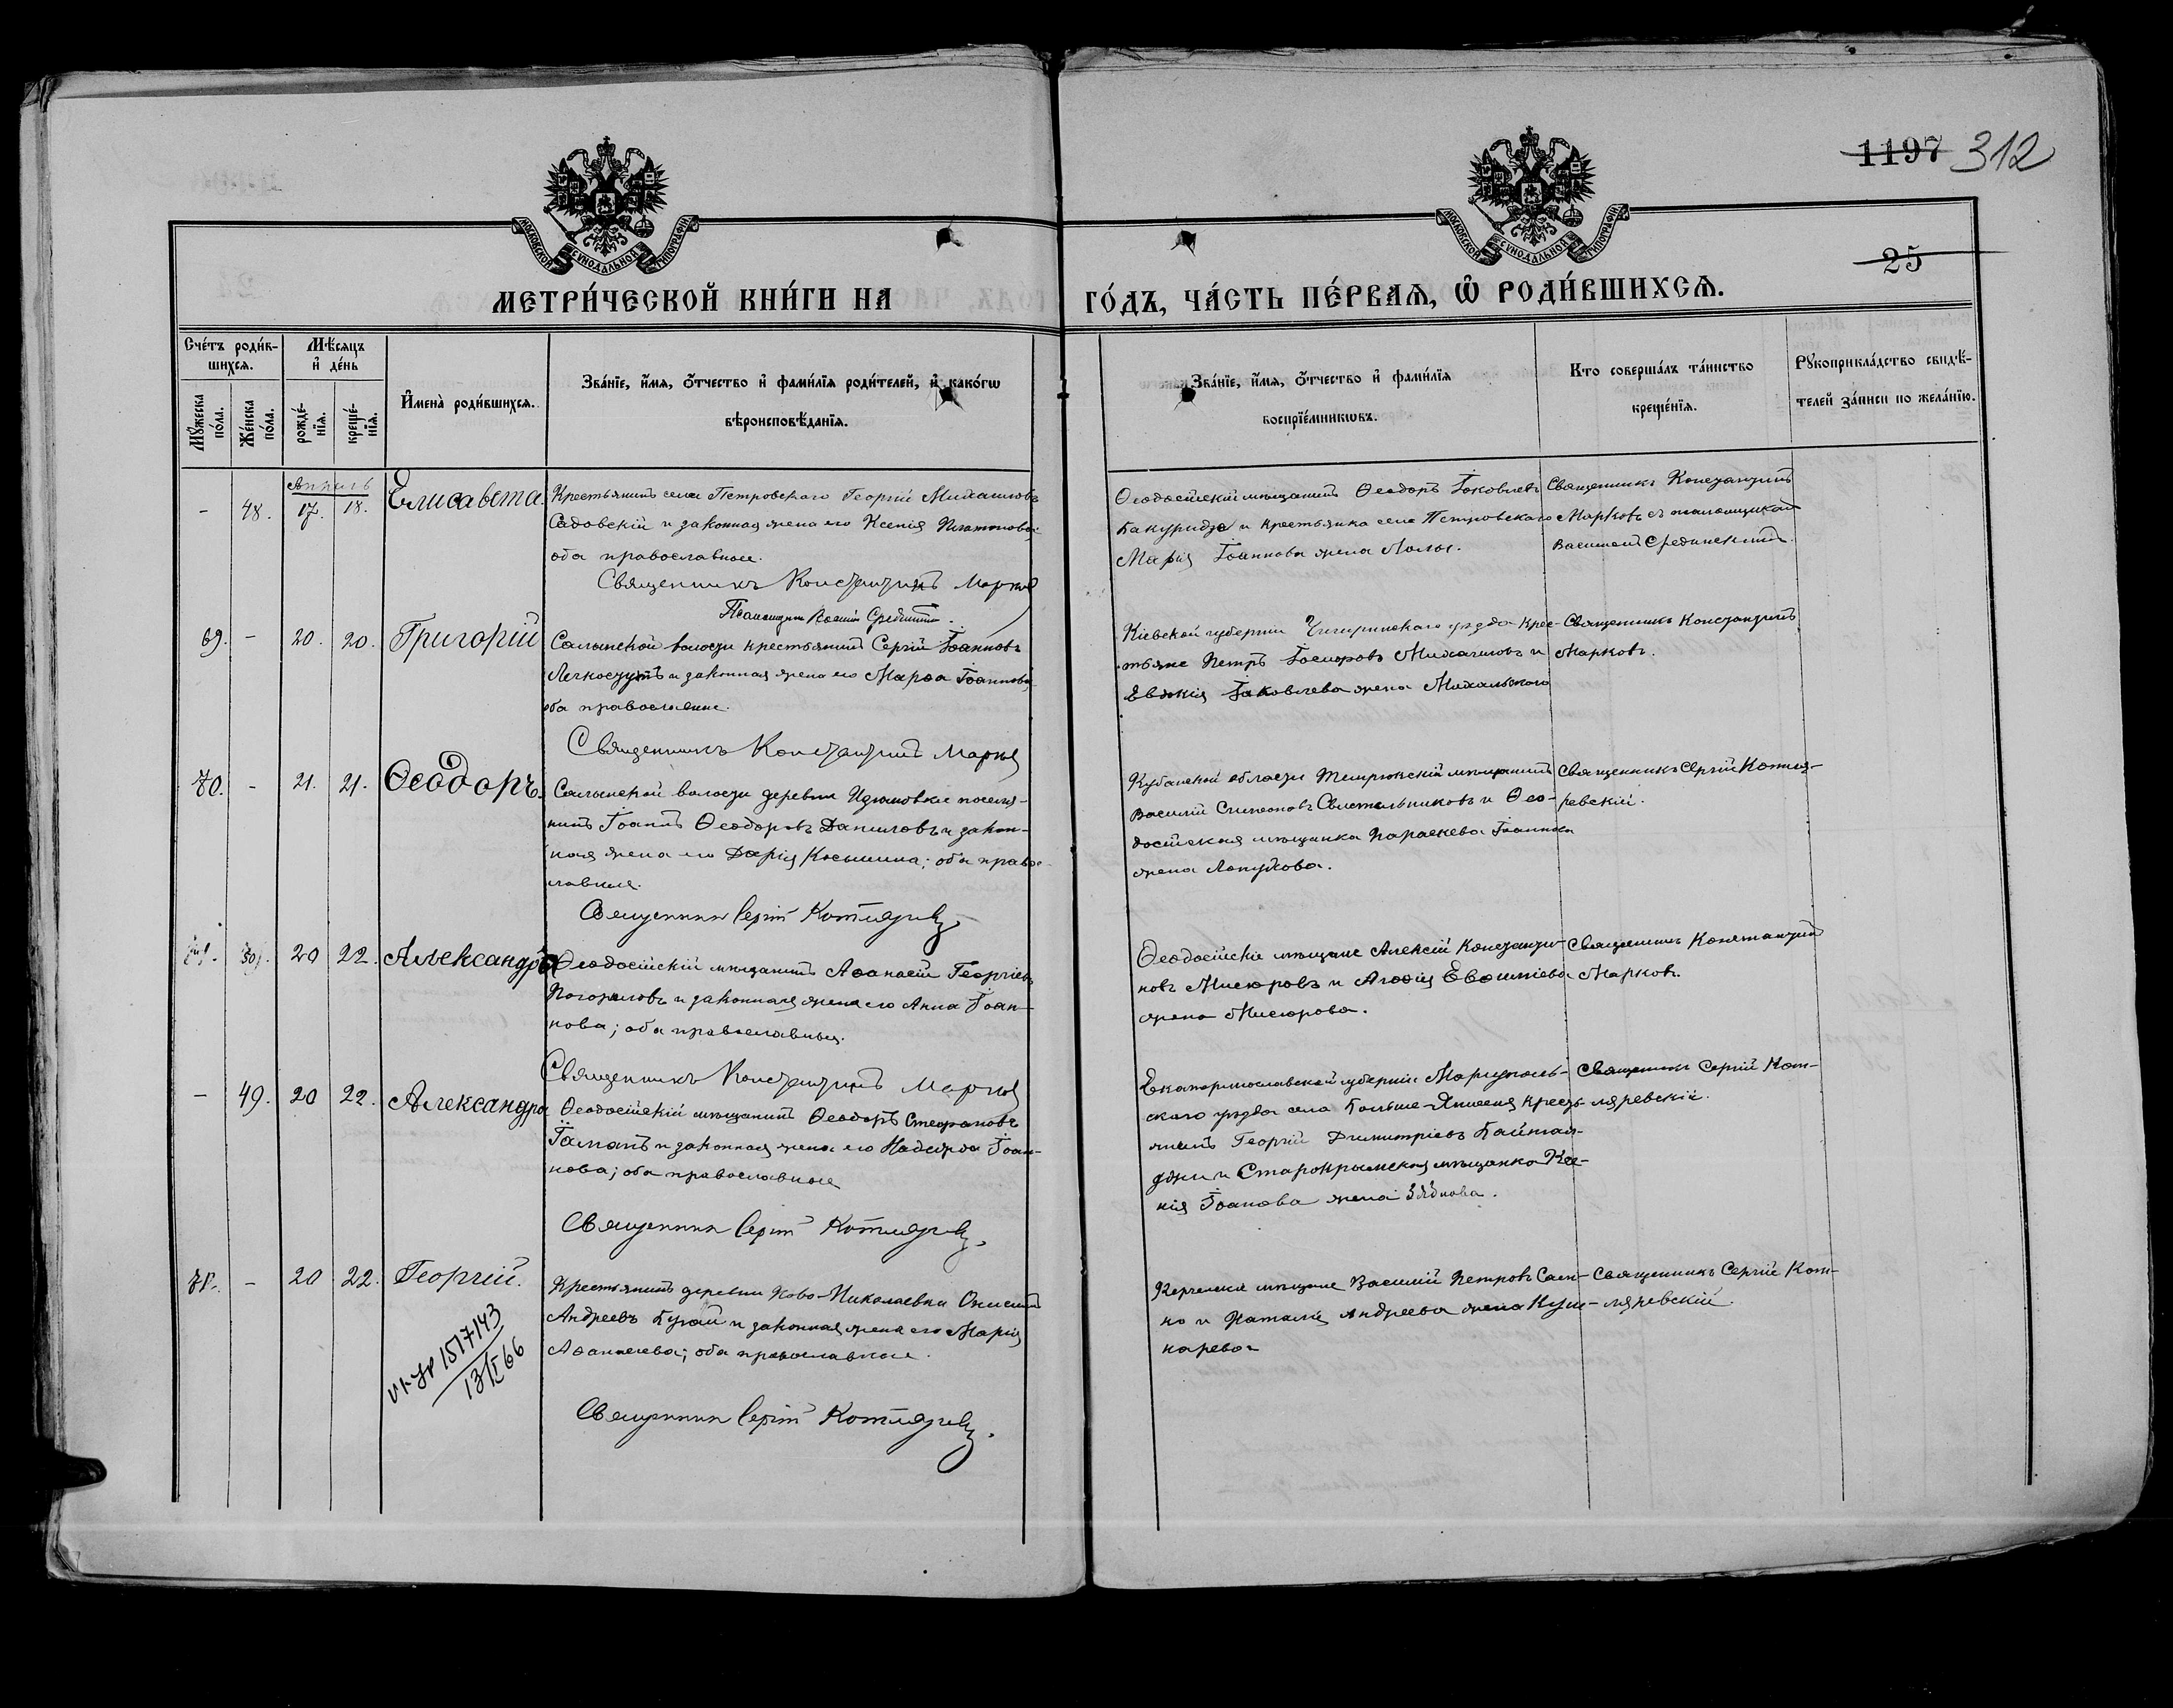 1197 312
МОСКОВСКОЙ СѴНОДАЛЬНОЙ ТИПОГРАФІИ
МОСКОВСКОЙ СѴНОДАЛЬНОЙ ТИПОГРАФІИ
25
МЕТРИ́ЧЕСКОЙ КНИ́ГИ НА ГО́ДЪ, ЧА́СТЬ ПЕ́РВАЯ, Ѡ РОДИ́ВШИХСЯ.
Сче́тъ роди́в-
шихся.
Мѣсяцъ
и де́нь
Мꙋжеска
по́ла.
Же́нска
по́ла.
рожде́-
нія.
креще́-
нія.
Имена̀ роди́вшихся.
Зва́ніе, и́мя, о́тчество и фами́лія роди́телей, и како́гѡ
вѣроисповѣ́данія.
Зва́ніе, и́мя, о́тчество и фами́лія
воспріе́мникѡвъ.
Кто соверша́лъ та́инство
креще́нія.
Рꙋкоприкла́дство свидѣ́-
телей за́писи по жела́нію.
Апрель
- 48. 17. 18. Елисавета.
Крестьянинъ села Петровскаго Георгій Михаиловъ
Садовскій и законная жена его Ксенія Платонова
оба православные.
Священникъ Константинъ Марковъ
Псаломщикъ Василій Срединскій.
Ѳеодосійскій мѣщанинъ Ѳеодоръ Іаковлевъ
Бакуридзе и крестьянка села Петровскаго
Марія Іоаннова жена
Священникъ Константинъ
Марковъ съ псаломщикомъ
Василіемъ Срединскимъ.
69. - 20. 20. Григорій
Салынской волости крестьянинъ Сергій Іоанновъ
Легкоступъ и законная жена его Марѳа Іоаннова,
оба православные.
Священникъ Константинъ Марковъ
Кіевской губерніи Чигиринскаго уѣзда крес-
тьяне Петръ Михаиловъ и
Іаковлева жена
Священникъ Константинъ
Марковъ.
70. - 21. 21. Ѳеодоръ.
Салынской волости деревни поселя-
нинъ Іоаннъ Ѳеодоровъ Даниловъ и закон-
ная жена его Дарія Косьмина; оба право-
славные.
Священникъ Сергій Котляревскій
Кубанской области Темрюкскій мѣщанинъ
Василій Симеоновъ Свистельниковъ и Ѳео-
досійская мѣщанка Параскева Іоаннова
жена Лопухова.
Священникъ Сергій Котля-
ревскій.
20 22. Александръ
Ѳеодосійскій мѣщанинъ Аѳанасій Георгіевъ
Погорѣловъ и законная жена его Анна Іоан-
нова; оба православные.
Священникъ Константинъ Марковъ
Ѳеодосійскіе мѣщане Алексій Константи-
новъ Мисюровъ и Агаѳія Евѳиміева
жена Мисюрова.
Священникъ Константинъ
Марковъ.
- 49. 20 22. Александра
Ѳеодосійскій мѣщанинъ Ѳеодоръ Стефановъ
и законная жена его Надежда Іоан-
нова; оба православные
Священникъ Сергій Котляревскій.
Екатеринославской губерніи Маріуполь-
скаго уѣзда села Больше-Янисоля кресть-
янинъ Георгій Димитріевъ
и Старокрымская мѣщанка Ксе-
нія Іоанова жена Зѣднова.
Священникъ Сергій Кот-
ляревскій.
71. - 20 22. Георгій.
Крестьянинъ деревни Ново-Николаевки Онисимъ
Андреевъ Бугай и законная жена его Марія
Аѳанасіева; оба православные.
Священникъ Сергій Котляревскій.
Керченскіе мѣщане Василій Петровъ Саен-
ко и Наталія Андреева жена Куш-
нарева
Священникъ Сергій Кот-
ляревскій.
1517143
13/I 66